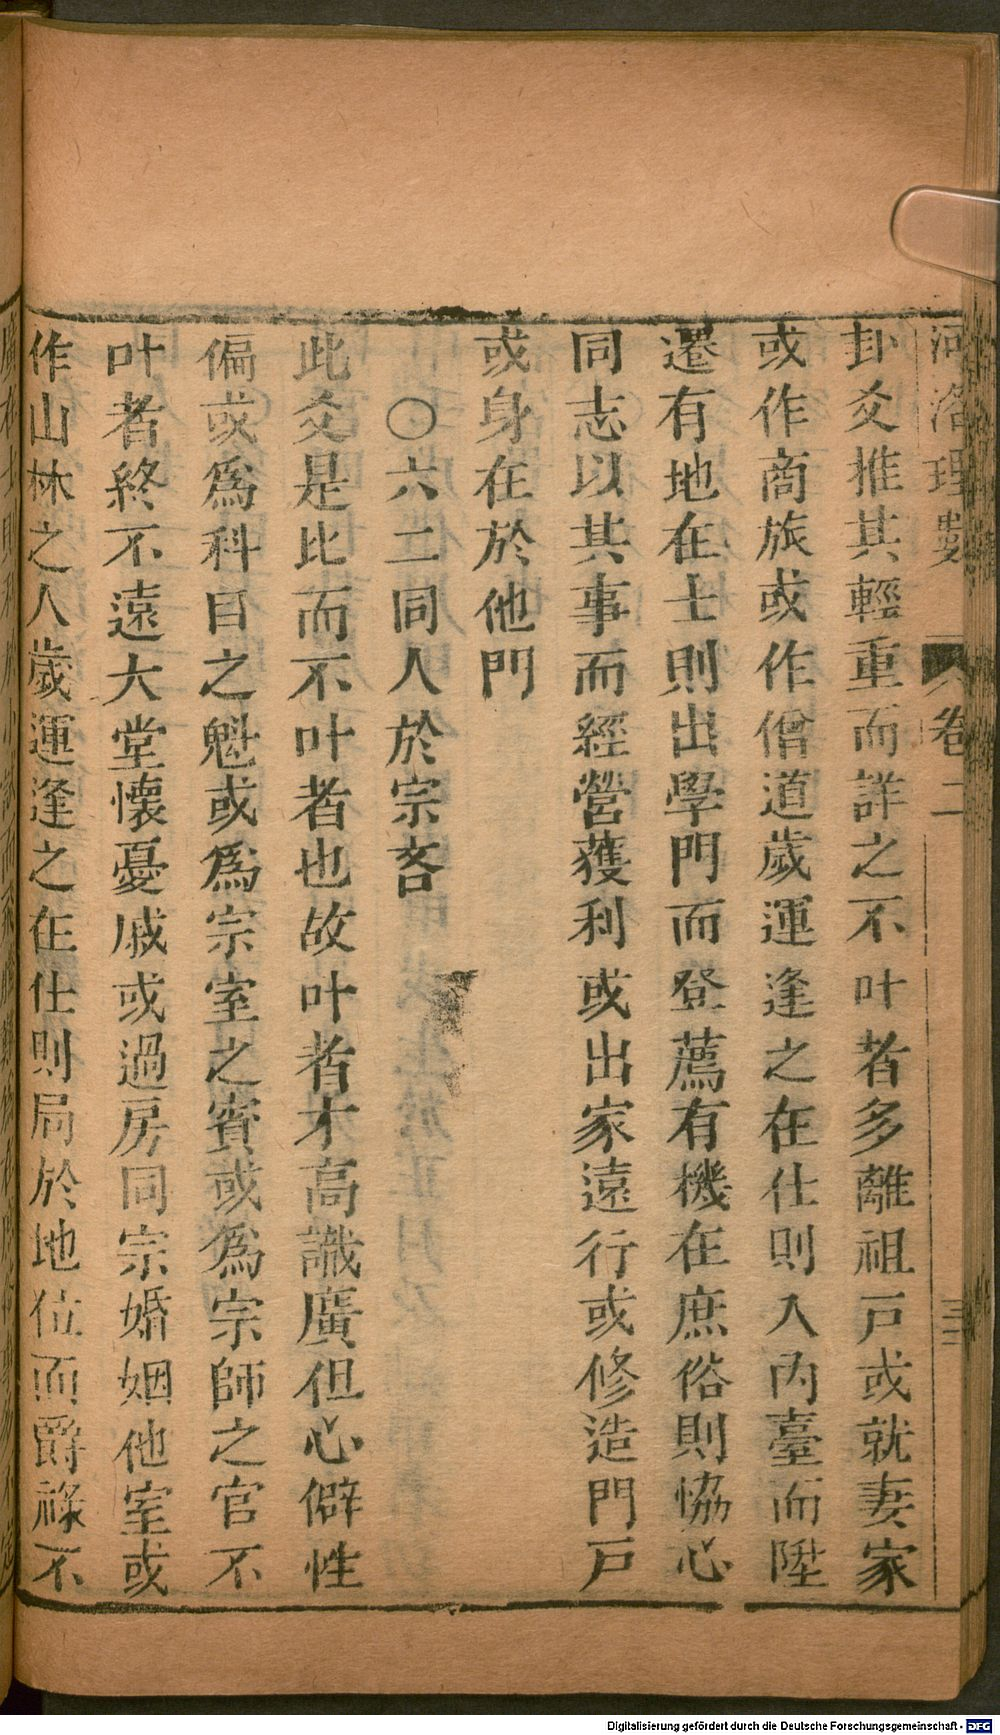 河洛理數 卷二 三二
卦爻推其輕重而詳之不叶者多離祖戸或就妻家
或作商旅或作僧道歲運逢之在仕則入內臺而陞
遷有地在士則出學門而登薦有機在庶俗則恊心
同志以其事而經營獲利或出家遠行或修造門戸
或身在於他門
○六二同人於宗吝
此爻是比而不叶者也故叶者才高識廣但心僻性
偏或爲科目之魁或爲宗室之賓或爲宗師之官不
叶者終不遠大堂懷憂戚或過房同宗婚姻他室或
作山林之人歲運逢之在仕則局於地位而爵祿不
Digitalisierung gefördert durch die Deutsche Forschungsgemeinschaft - DFG